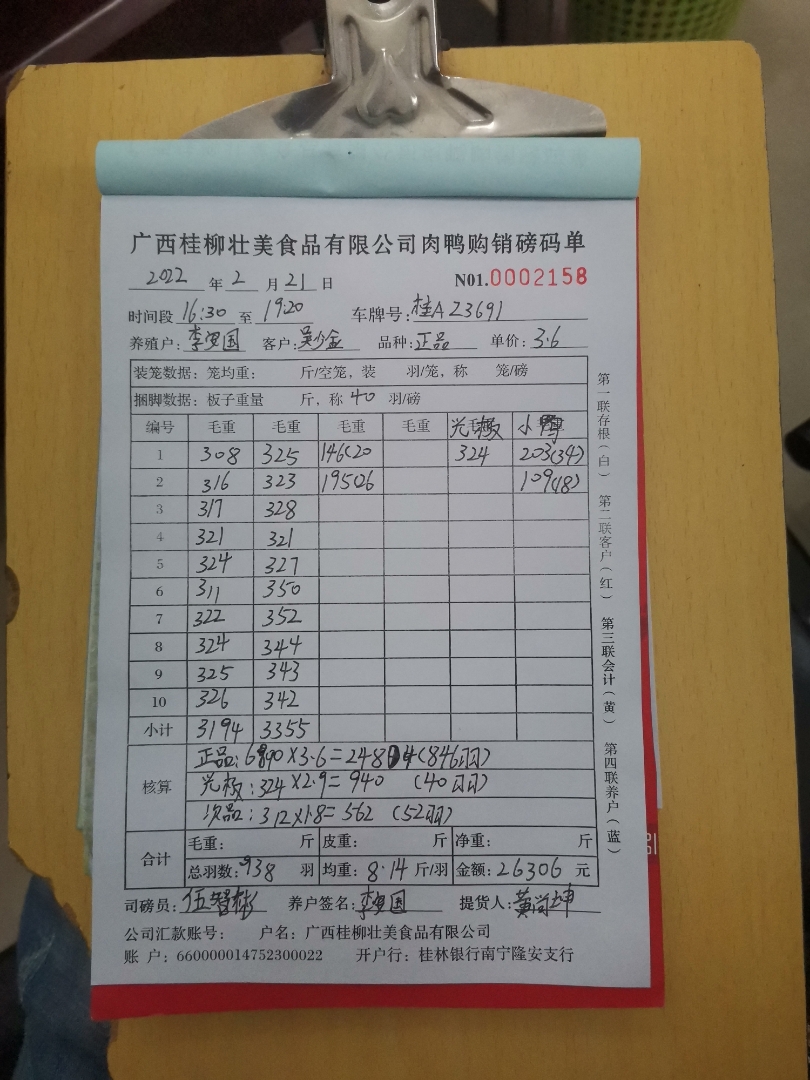 广西桂柳壮美食品有限公司肉鸭购销磅码单
2022 年 2 月 21 日 N01.0002158
时间段 16:30 至 19:20 车牌号: 桂AZ3691
养殖户: 李国 客户: 吴少金 品种: 正品 单价: 3.6
装笼数据: 笼均重: 斤/空笼, 装 羽/笼, 称 笼/磅
捆脚数据: 板子重量 斤, 称 40 羽/磅
编号 毛重 毛重 毛重 毛重 光板 小鸭
1 308 325 146(20 324 203(34)
2 316 323 195026 109(18)
3 317 328
4 321 321
5 324 327
6 311 350
7 322 352
8 324 344
9 325 343
10 326 342
小计 3194 3355
核算
正品: 6890×3.6=24804(846羽)
光板: 324×2.9=940 (40羽)
次品: 312×1.8=562 (52羽)
合计
毛重: 斤 皮重: 斤 净重: 斤
总羽数: 938 羽 均重: 8.14 斤/羽 金额: 26306 元
司磅员: 伍智彬 养户签名: 李国 提货人: 黄坤
公司汇款账号: 户名: 广西桂柳壮美食品有限公司
账 户: 660000014752300022 开户行: 桂林银行南宁隆安支行
第一联存根(白) 第二联客户(红) 第三联会计(黄) 第四联养户(蓝)